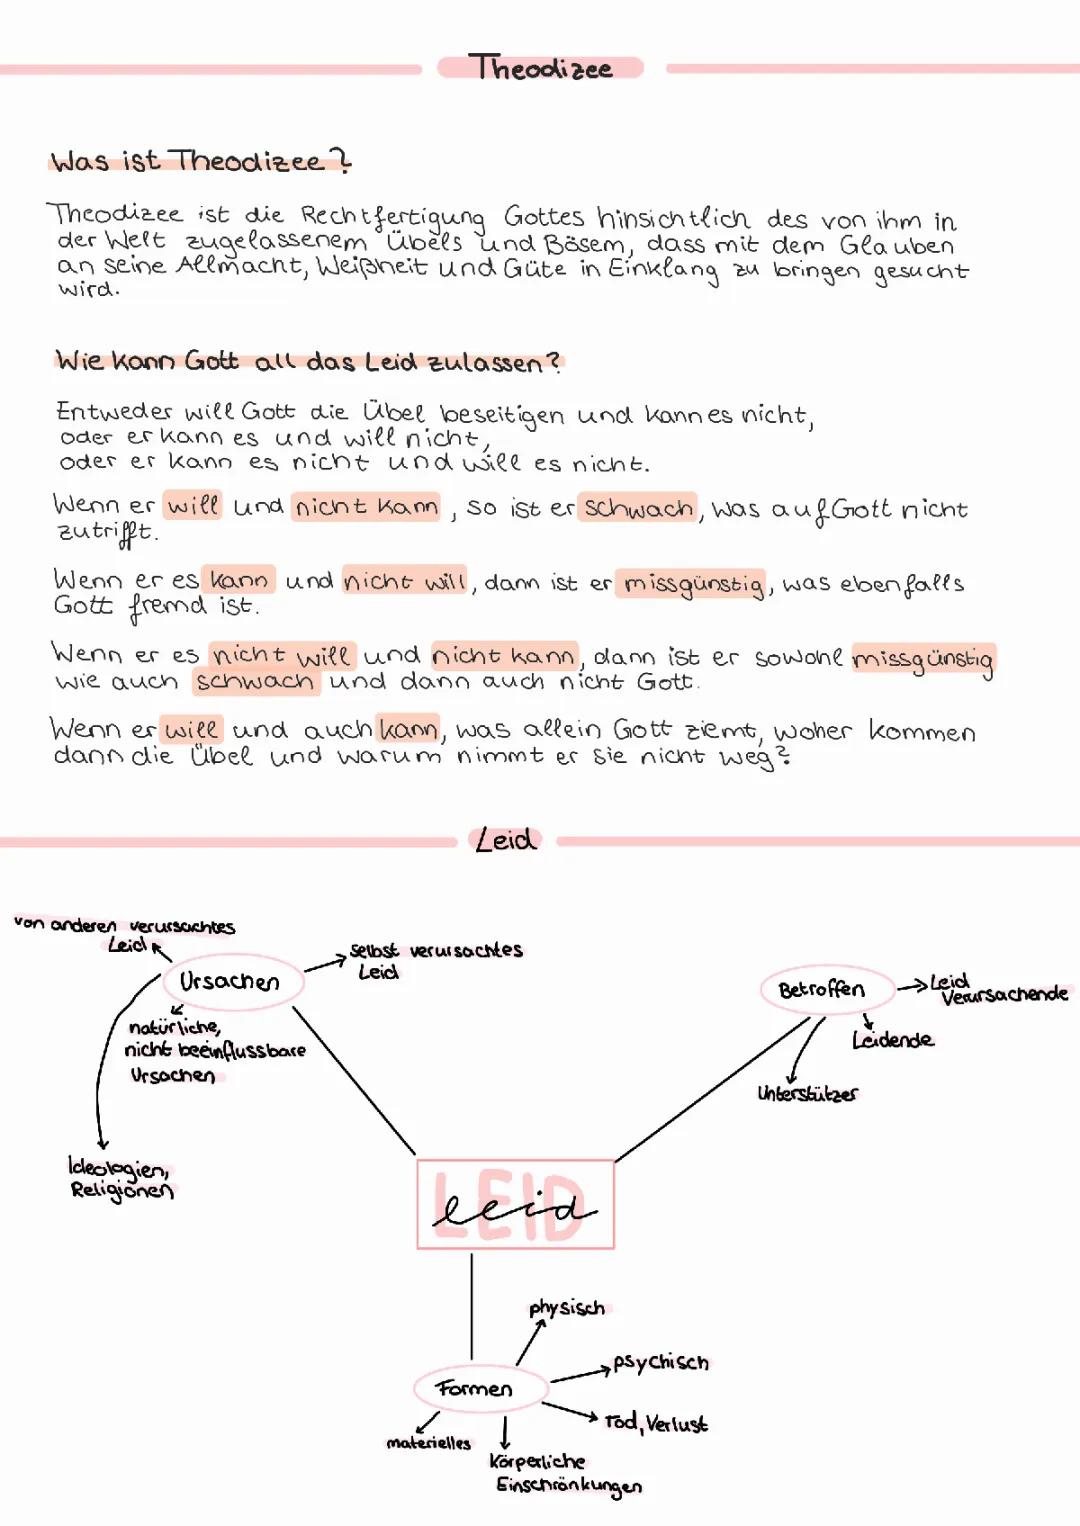 Theodizee
Was ist Theodizee?
Theodizee ist die Rechtfertigung Gottes hinsichtlich des von ihm in
der Welt zugelassenem Übels und Bösem, dass mit dem Glauben
an seine Allmacht, Weißheit und Güte in Einklang zu bringen gesucht
wird.
Wie kann Gott all das Leid zulassen?
Entweder will Gott die Übel beseitigen und kann es nicht,
oder er kann es und will nicht,
oder er kann es nicht und will es nicht.
Wenn er will und nicht kann, so ist er schwach, was auf Gott nicht
zutrifft.
Wenn er es kann und nicht will, dann ist er missgünstig, was ebenfalls
Gott fremd ist.
Wenn er es nicht will und nicht kann, dann ist er sowohl missgünstig
wie auch schwach und dann auch nicht Gott.
Wenn er will und auch kann, was allein Gott ziemt, woher kommen
dann die Übel und warum nimmt er sie nicht weg?
Leid
von anderen verursachtes
Leid
Ursachen
selbst verursachtes
Leid
natürliche,
nicht beeinflussbare
Ursachen
Ideologien,
Religionen
Betroffen
Leid
Verursachende
Leidende
Unterstützer
LEID
leid
physisch
psychisch
Formen
Tod, Verlust
materielles
Körperliche
Einschränkungen